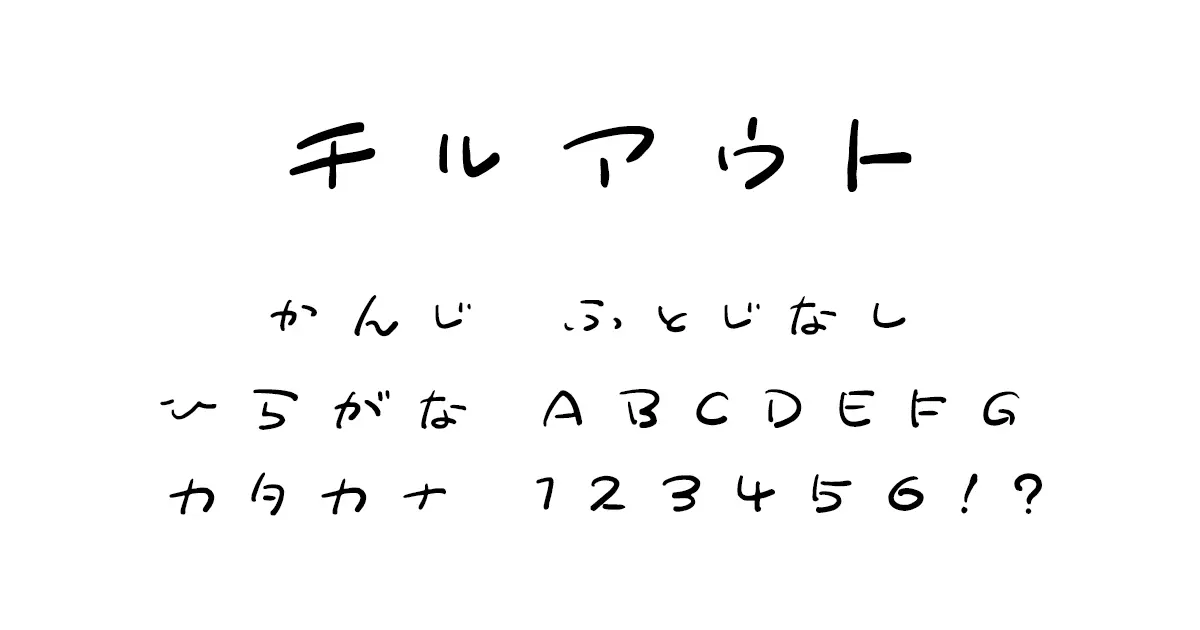 チルアウト
かんじ ふとじなし
ひらがな ABCDEFG
カタカナ 123456!?